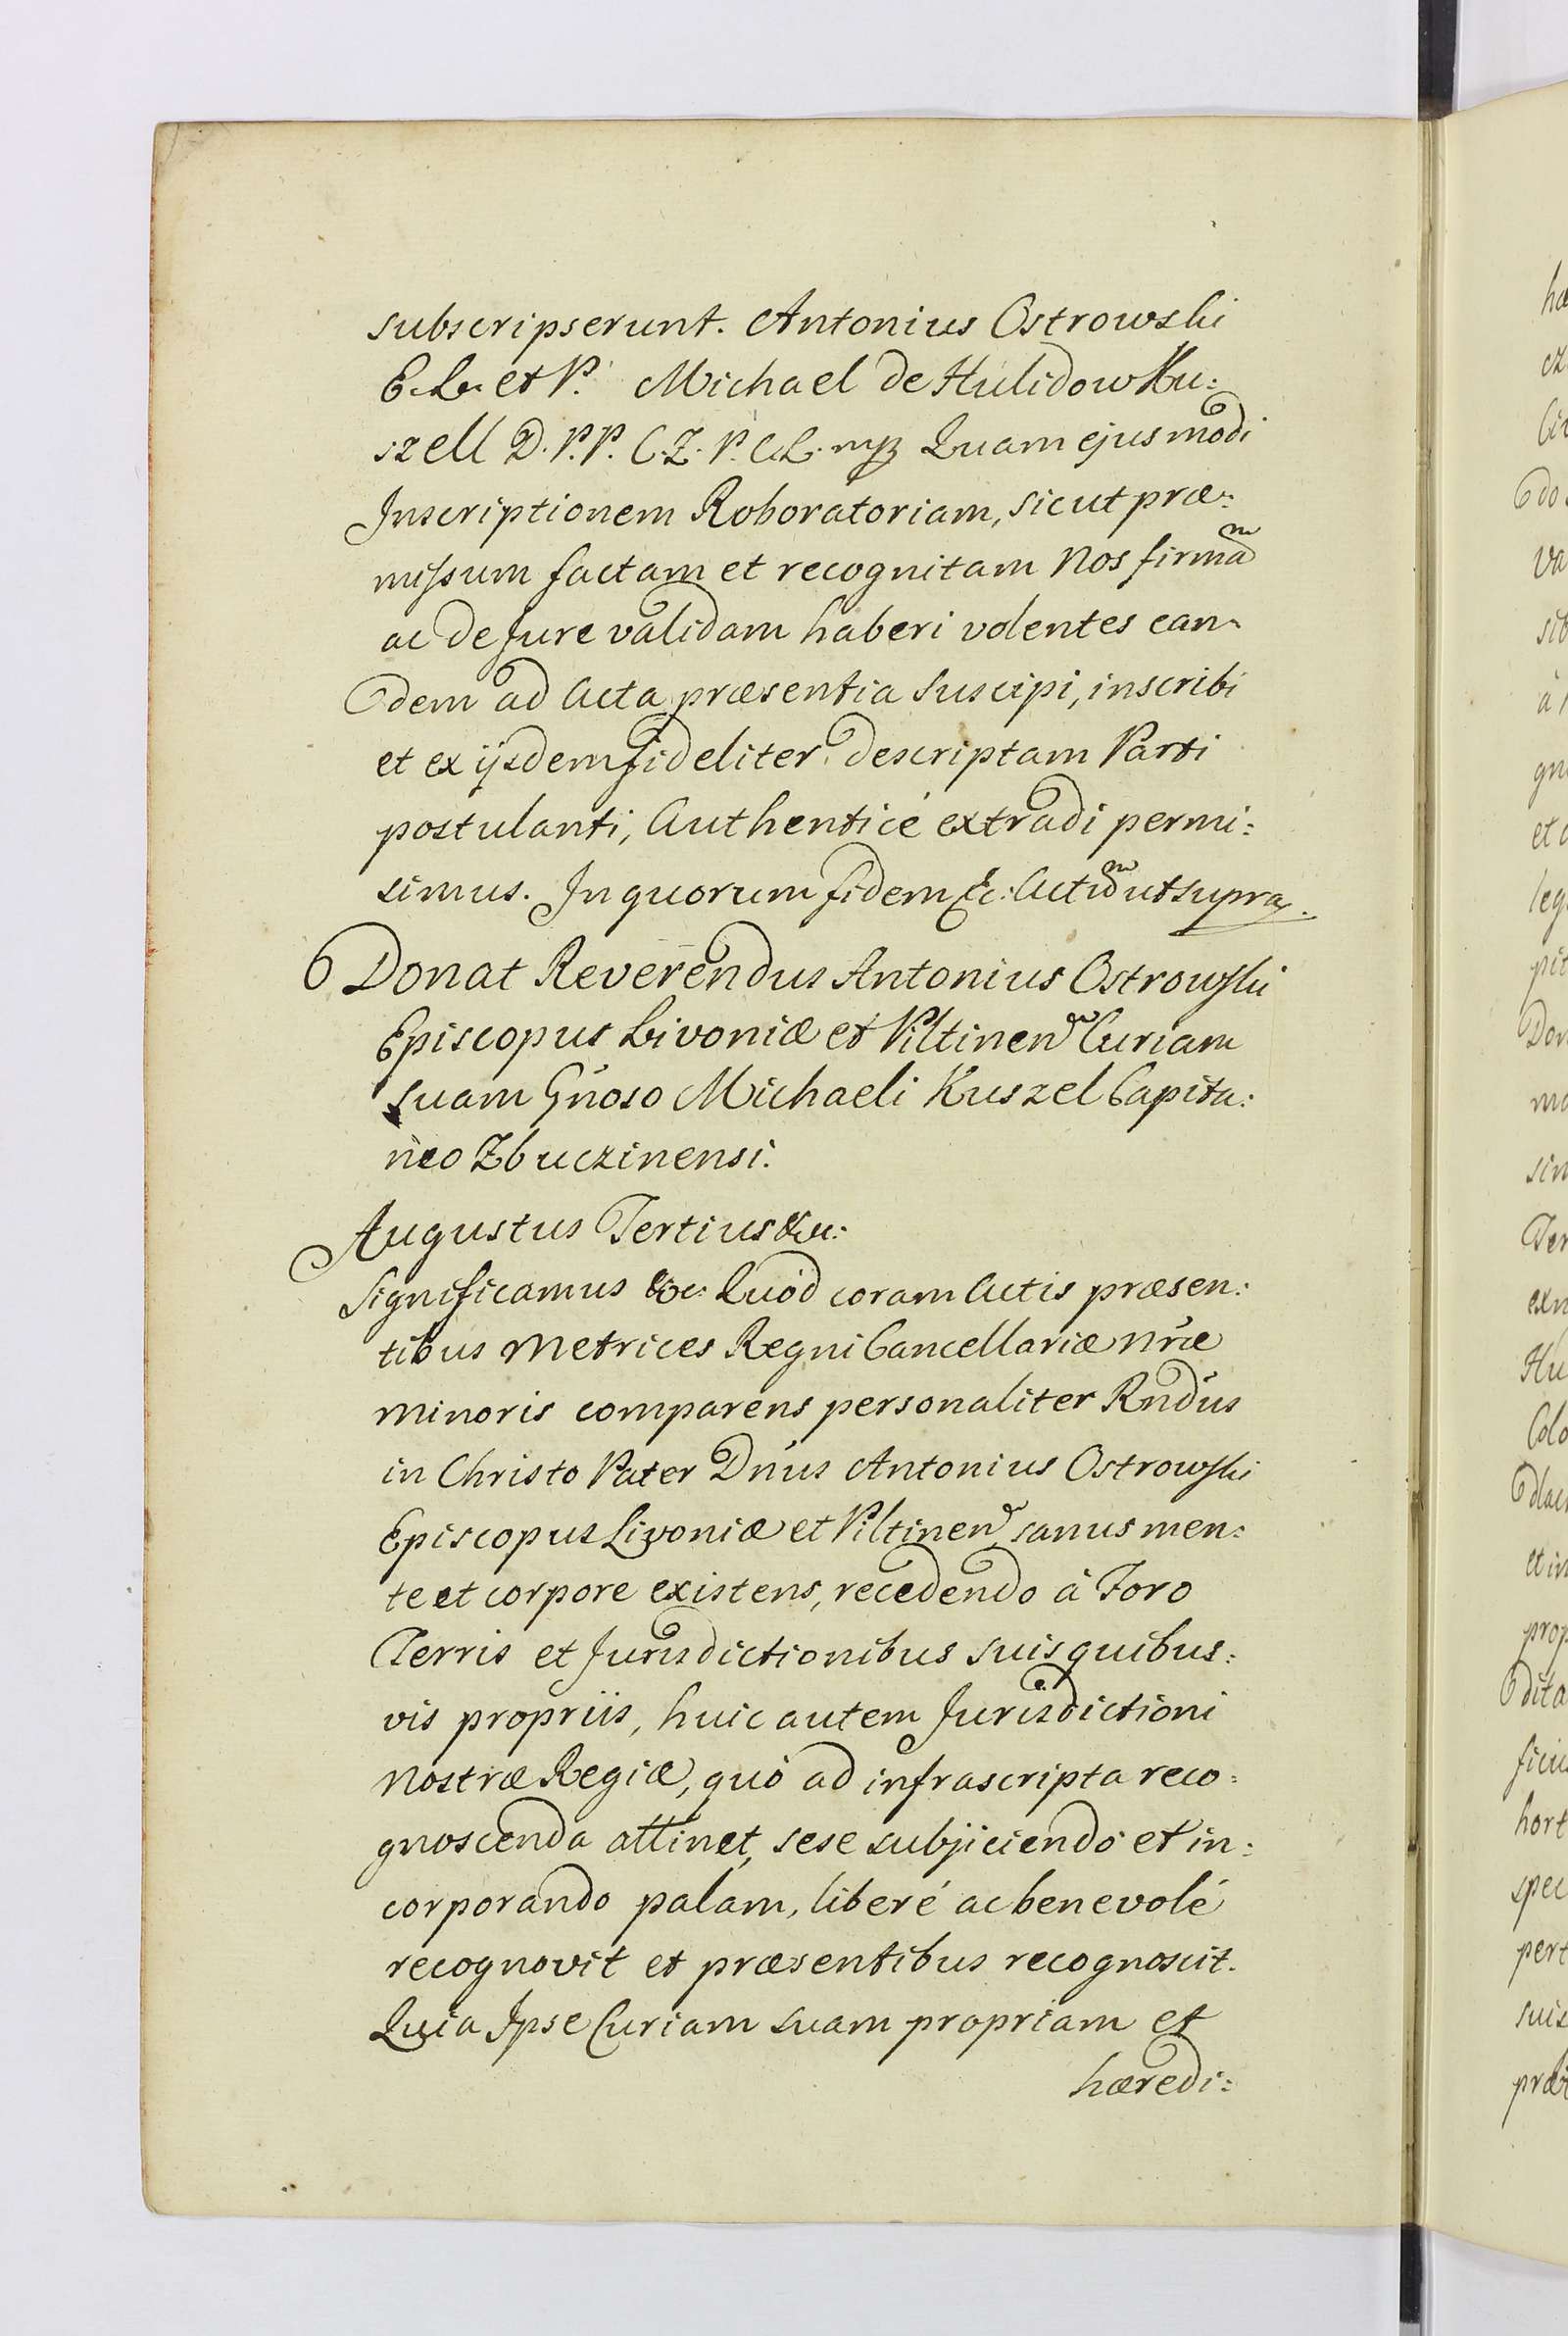 subscripserunt. Antonius Ostrowski
E. L. et P. Michael de Hulidow Ku:
szell D. P. P. C. Z. P. C. L. mp Quam ejusmodi
Inscriptionem Roboratoriam, sicut præ:
missum factam et recognitam Nos firmam
ac de Jure validam haberi volentes ean
dem ad Acta præsentia suscipi, inscribi
et ex ijsdem fideliter descriptam Parti
postulanti, Authenticè extradi permi:
simus. In quorum fidem &c: Actum ut supra.
6 Donat Reverendus Antonius Ostrowski
Episcopus Livoniæ et Piltinen Curiam
suam Gnoso Michaeli Kuszel Capita:
neo Zbuczinensi.
Augustus Tertius &c:
Significamus &c: Quòd coram Actis præsen:
tibus Metrices Regni Cancellariæ Nræ
Minoris comparens personaliter Rndus
in Christo Pater Dnus Antonius Ostrowski
Episcopus Livoniæ et Piltinen sanus men:
te et corpore existens, recedendo à Foro
Terris et Jurisdictionibus suis quibus:
vis propriis, huic autem Jurisdictioni
Nostræ Regiæ, quò ad infrascripta reco:
gnoscenda attinet, sese subjiciendo et in:
corporando palàm, liberè ac benevolè
recognovit et præsentibus recognoscit.
Quia Ipse Curiam suam propriam et
hæredi: